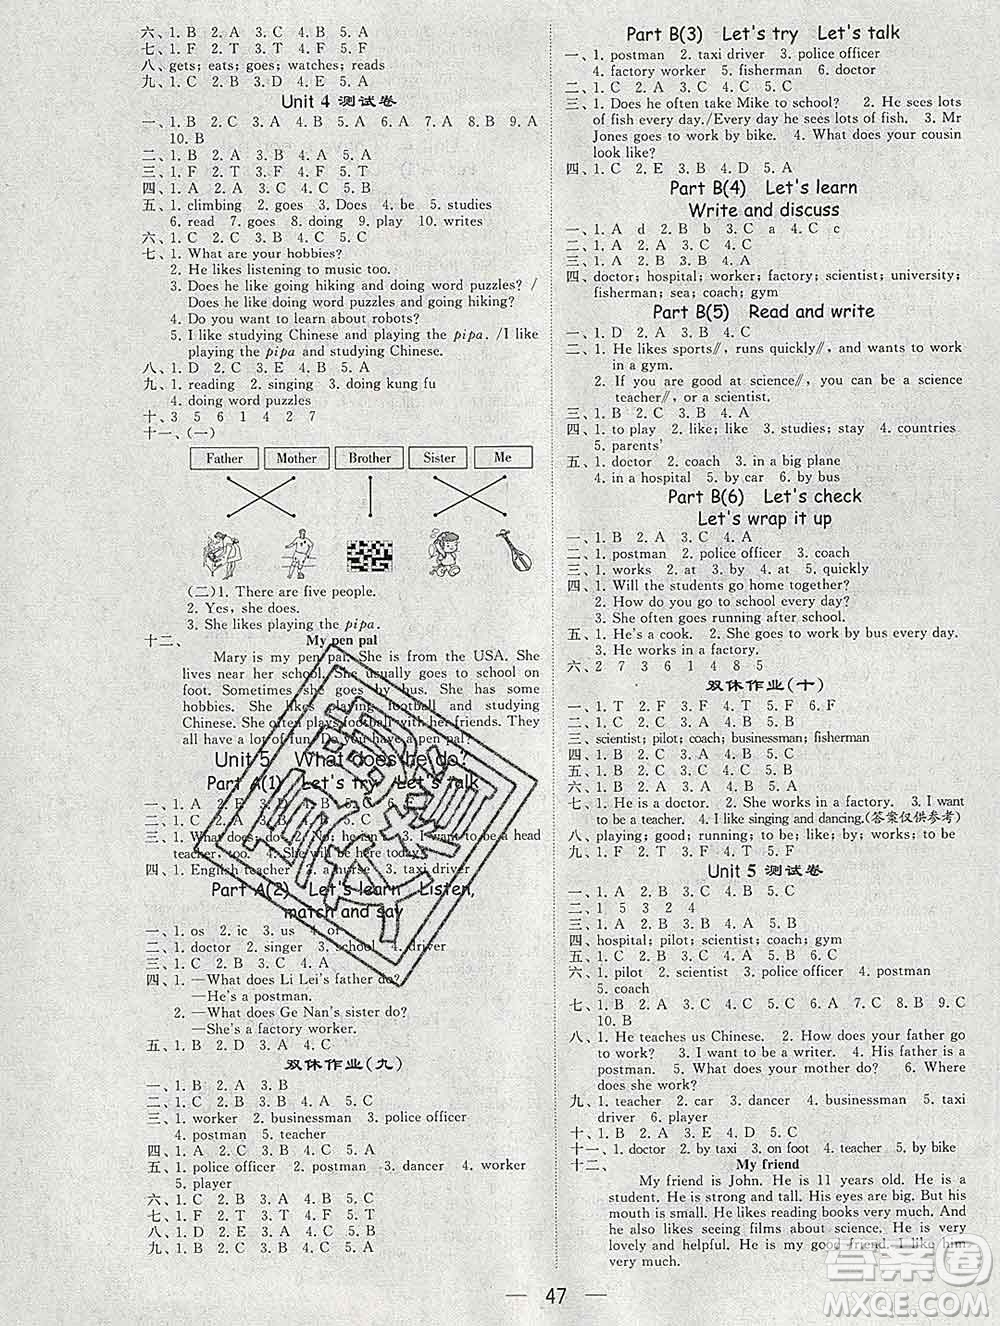 六、1. B  2. A  3. C  4. B  5. A
七、1. F  2. T  3. T  4. F  5. T
八、gets; eats; goes; watches; reads
九、1. C  2. B  3. D  4. E  5. A
Unit 4 测试卷
一、1. B  2. C  3. A  4. B  5. C  6. A  7. A  8. B  9. A
10. B
二、1. B  2. A  3. B  4. A  5. A
三、1. F  2. T  3. F  4. T  5. T
四、1. A  2. A  3. B  4. B  5. A
五、1. climbing  2. goes  3. Does  4. be  5. studies
6. read  7. goes  8. doing  9. play  10. writes
六、1. C  2. B  3. B  4. A  5. C
七、1. What are your hobbies?
2. He likes listening to music too.
3. Does he like going hiking and doing word puzzles? /
Does he like doing word puzzles and going hiking?
4. Do you want to learn about robots?
5. I like studying Chinese and playing the pipa. /I like
playing the pipa and studying Chinese.
八、1. D  2. C  3. B  4. A
九、1. reading  2. singing  3. doing kung fu
4. doing word puzzles
十、3  5  6  1  4  2  7
十一、(一)
Father  Mother  Brother  Sister  Me
(二)1. There are five people.
2. Yes, she does.
3. She likes playing the pipa.
十二、 My pen pal
Mary is my pen pal. She is from the USA. She
lives near her school. She usually goes to school on
foot. Sometimes she goes by bus. She has some
hobbies. She likes playing football and studying
Chinese. She often plays football with her friends. They
all have a lot of fun. Do you have a pen pal?
Unit 5  What does he do?
Part A(1)  Let's try  Let's talk
一、1. A  2. E  3. D  4. B  5. C  6.
二、1. C  2. A  3. C  4. B  5. A
三、1. What does; do  2. No; he isn't  3. I want to be a head
teacher, too.  4. She will be here today!
四、1. English teacher  2. a nurse  3. taxi driver
Part A(2)  Let's learn  Listen,
match and say
一、1. os  2. ic  3. us  4. of
二、1. doctor  2. singer  3. school  4. driver
三、1. C  2. B  3. C  4. A
四、1. —What does Li Lei's father do?
—He's a postman.
2. —What does Ge Nan's sister do?
—She's a factory worker.
五、1. B  2. D  3. A  4. C
双休作业(九)
一、1. B  2. A  3. B
二、1. C  2. C  3. A  4. B  5. C
三、1. worker  2. businessman  3. police officer
4. postman  5. teacher
四、1. A  2. C  3. C  4. B  5. A
五、1. police officer  2. postman  3. dancer  4. worker
5. player
六、1. C  2. B  3. B  4. C  5. A
七、1. F  2. T  3. F  4. T  5. T
八、1. D  2. B  3. E  4. C  5. A
九、1. C  2. A  3. B  4. C  5. B
Part B(3)  Let's try  Let's talk
一、1. postman  2. taxi driver  3. police officer
4. factory worker  5. fisherman  6. doctor
二、1. C  2. C  3. A  4. A  5. B
三、1. Does he often take Mike to school?  2. He sees lots
of fish every day./Every day he sees lots of fish.  3. Mr
Jones goes to work by bike.  4. What does your cousin
look like?
四、1. C  2. E  3. B  4. D  5. A
Part B(4)  Let's learn
Write and discuss
一、1. A  d  2. B  b  3. C  a  4. C  c
二、1. A  2. A  3. C  4. A
三、1. A  2. B  3. B  4. A
四、doctor; hospital; worker; factory; scientist; university;
fisherman; sea; coach; gym
Part B(5)  Read and write
一、1. D  2. A  3. B  4. C
二、1. He likes sports∥, runs quickly∥, and wants to work
in a gym.
2. If you are good at science∥, you can be a science
teacher∥, or a scientist.
三、1. B  2. C  3. B  4. A
四、1. to play  2. like; like  3. studies; stay  4. countries
5. parents'
五、1. doctor  2. coach  3. in a big plane
4. in a hospital  5. by car  6. by bus
Part B(6)  Let's check
Let's wrap it up
一、1. B  2. C  3. C  4. A
二、1. postman  2. police officer  3. coach
三、1. works  2. at  3. by  4. at  5. quickly
四、1. Will the students go home together?
2. How do you go to school every day?
3. She often goes running after school.
五、1. He's a cook.  2. She goes to work by bus every day.
3. He works in a factory.
六、2  7  3  6  1  4  8  5
双休作业(十)
一、1. T  2. F  3. F  4. T  5. F  6. F
二、1. C  2. C  3. A  4. B  5. A
三、scientist; pilot; coach; businessman; fisherman
四、1. B  2. C  3. A  4. B  5. C
五、1. C  2. C  3. B  4. A  5. B
六、1. B  2. B  3. A  4. C  5. C
七、1. He is a doctor.  2. She works in a factory.  3. I want
to be a teacher.  4. I like singing and dancing.(答案仅供参考)
八、playing; good; running; to be; like; by; works; to be
九、1. F  2. T  3. T  4. F  5. F
Unit 5 测试卷
一、1. B  2. A  3. C  4. B  5. C
二、1  5  3  2  4
三、1. A  2. B  3. C  4. A  5. B
四、hospital; pilot; scientist; coach; gym
五、1. C  2. B  3. A  4. C  5. B
六、1. pilot  2. scientist  3. police officer  4. postman
5. coach
七、1. B  2. A  3. C  4. B  5. A  6. C  7. C  8. B  9. C
10. B
八、1. He teaches us Chinese.  2. How does your father go
to work?  3. I want to be a writer.  4. His father is a
postman.  5. What does your mother do?  6. Where
does she work?
九、1. teacher  2. car  3. dancer  4. businessman  5. taxi
driver  6. player
十、1. B  2. A  3. E  4. D  5. C
十一、1. doctor  2. by taxi  3. on foot  4. teacher  5. by bike
十二、 My friend
My friend is John. He is 11 years old. He is a
student. He is strong and tall. His eyes are big. But his
mouth is small. He likes reading books very much. And
he also likes seeing films about science. He is very
lovely and helpful. He is my good friend. I like him
very much.
— 47 —
答案圈
MXQE.COM